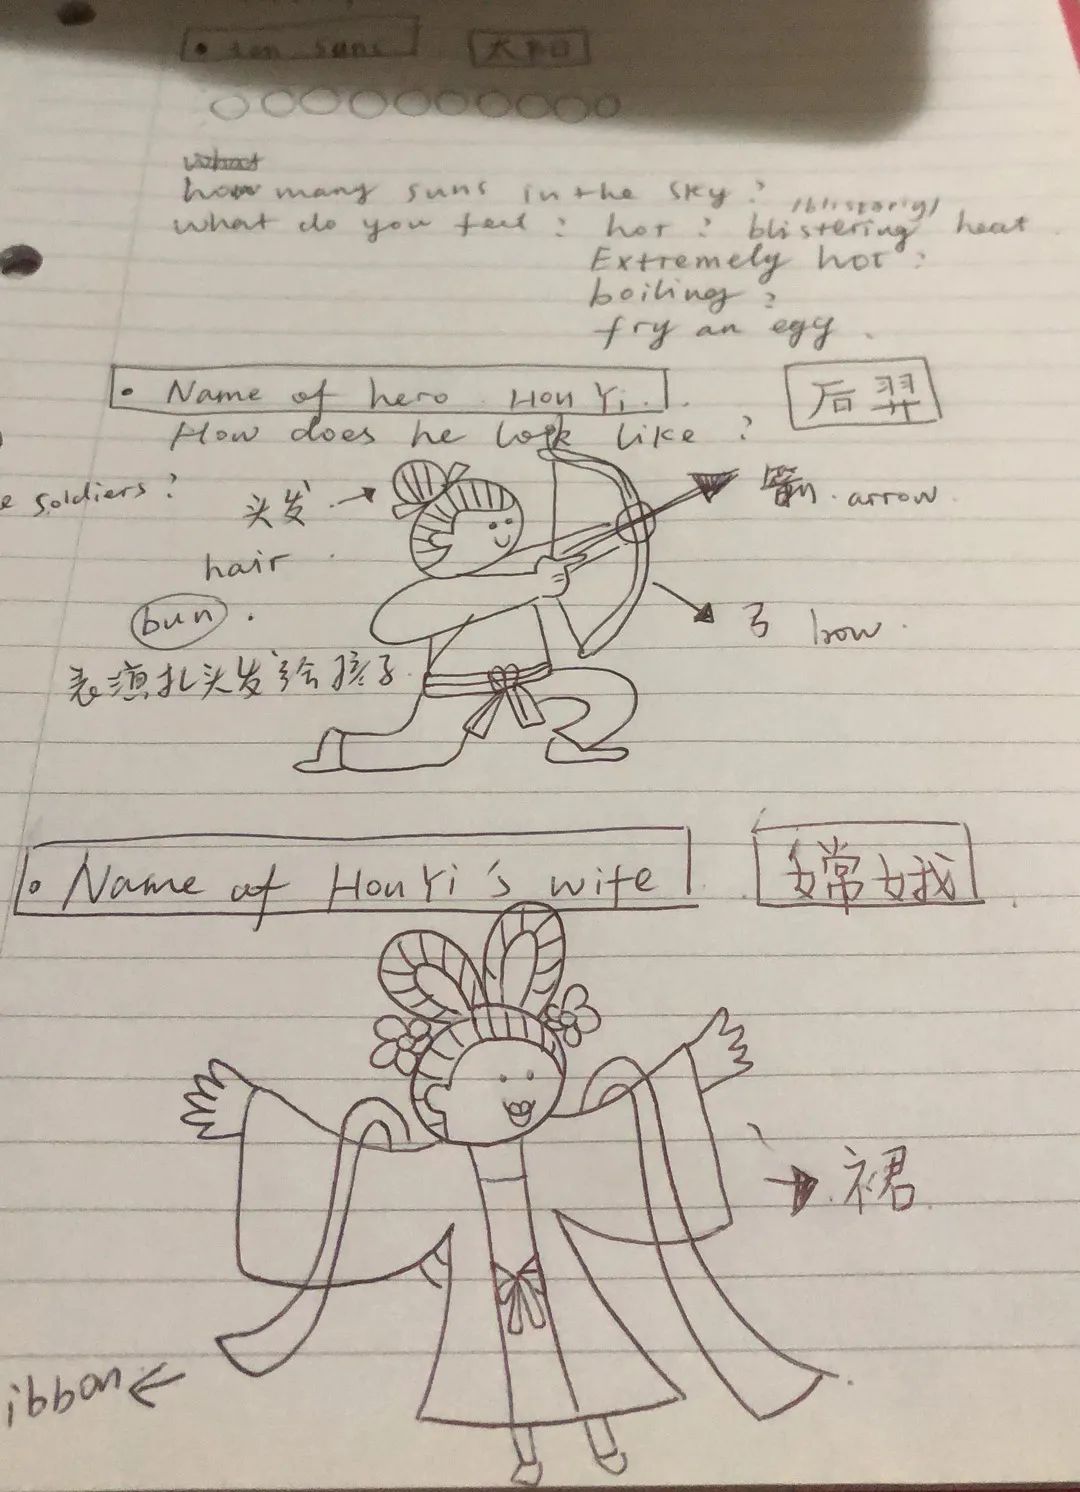 • ten suns 太阳
how many suns in the sky ?
what do you feel ? hot ? blistering heat .
Extremely hot ?
boiling ?
fry an egg .
• Name of hero Hou Yi . 后羿
How does he look like ?
soldiers ?
头发
箭 . arrow .
hair
bun .
弓 bow .
表演扎头发给孩子 .
• Name of Hou Yi's wife 嫦娥
裙
ibbon